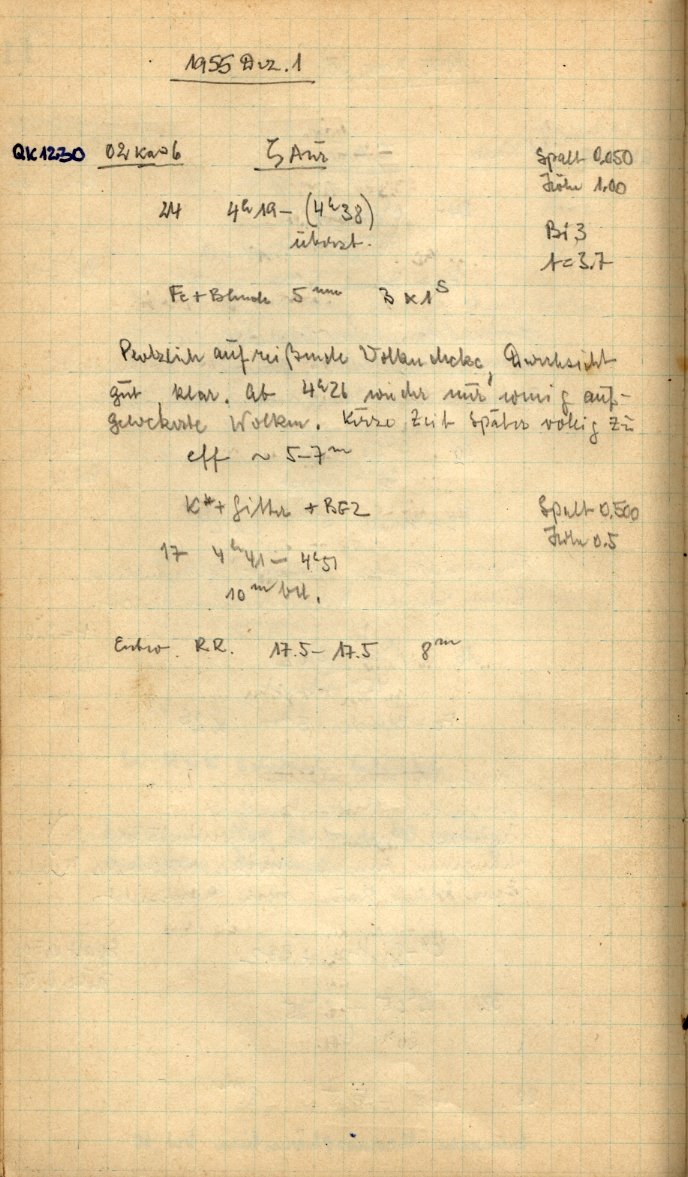 1955 Dez. 1
QK1230 02 Ka 26 ζ Aur Spalt 0,050
Höhe 1.00
24 4h19 – (4h38)
überzt. Bi 3
t = 3.7
Fe + Blende 5 mm 3 x 1s
Plötzlich aufreißende Wolkendecke, Durchsicht
gut klar. Ab 4h26 wieder nur wenig auf-
gelockerte Wolken. Kurze Zeit später völlig zu
eff ~ 5–7m
K* + Gitter + BG2 Spalt 0,500
Höhe 0.5
17 4h41 – 4h51
10m bel.
Entw. R.R. 17.5 – 17.5 8m